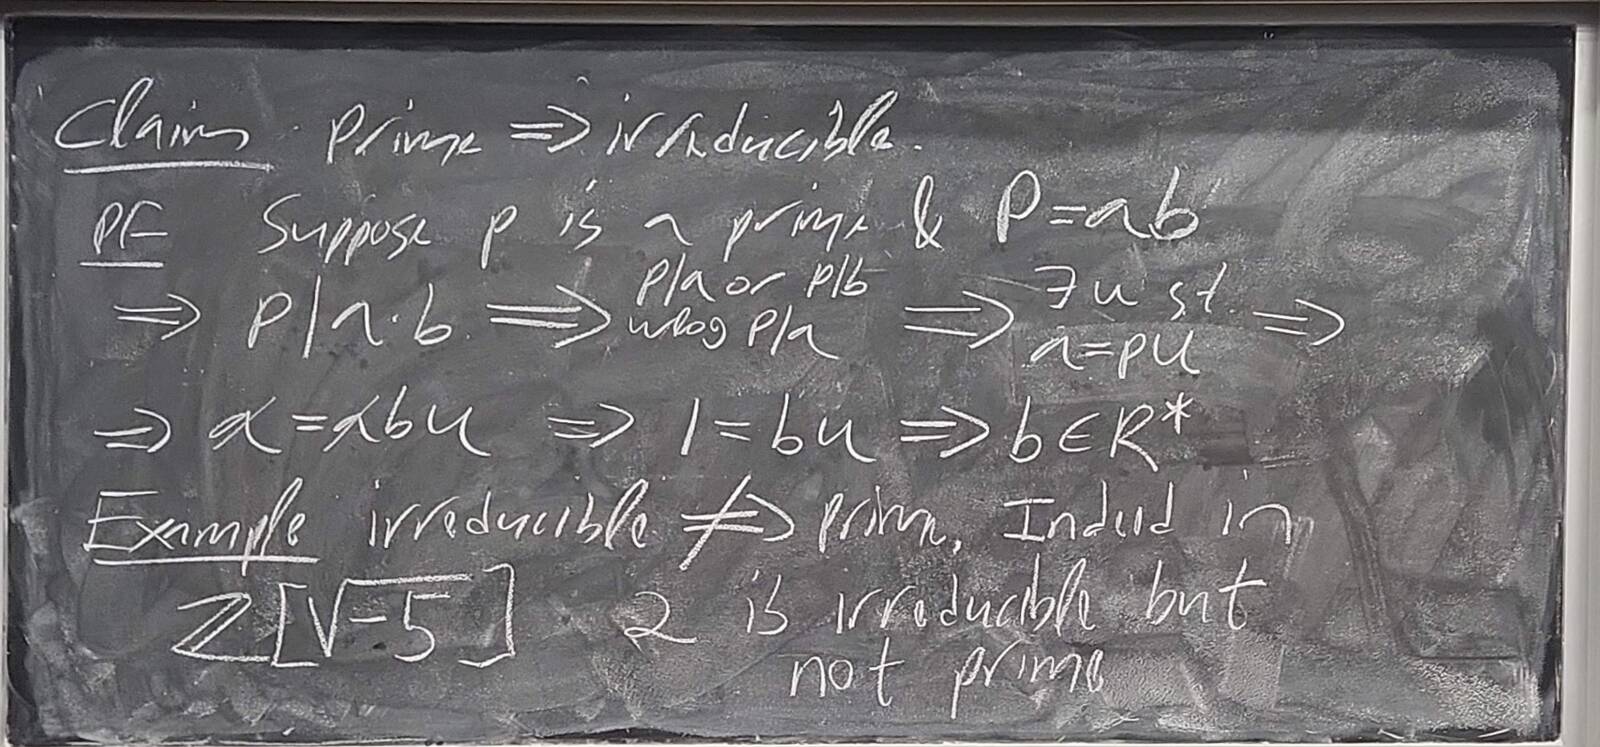 Claim prime ⇒ irreducible.
Pf Suppose p is a prime & p=ab
⇒ p|a·b ⇒ p|a or p|b wlog p|a ⇒ ∃u st. a=pu ⇒
⇒ a=abu ⇒ 1=bu ⇒ b∈R*
Example irreducible ⇏ prime. Indeed in
Z[√-5] 2 is irreducible but
not prime